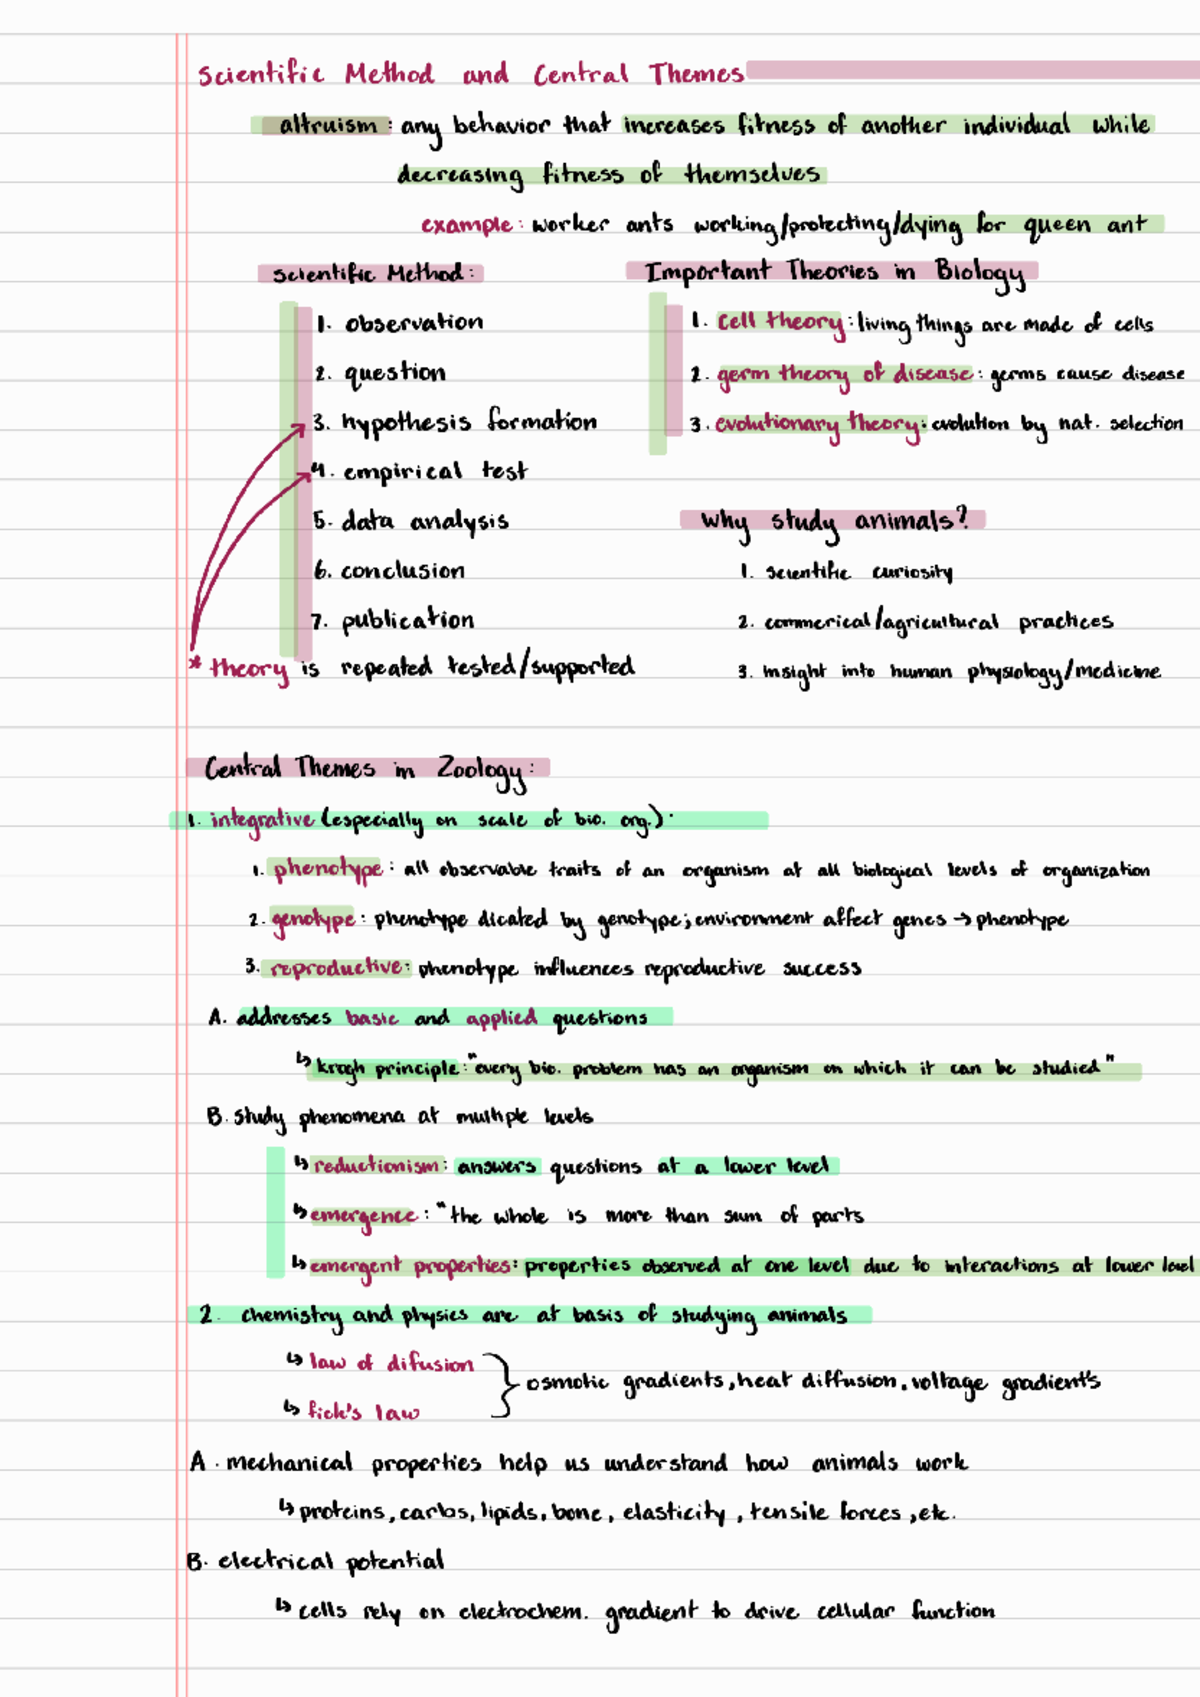 Scientific Method and Central Themes
altruism: any behavior that increases fitness of another individual while
decreasing fitness of themselves
example: worker ants working/protecting/dying for queen ant
Scientific Method:
1. observation
2. question
3. hypothesis formation
4. empirical test
5. data analysis
6. conclusion
7. publication
* theory is repeated tested/supported
Important Theories in Biology
1. cell theory: living things are made of cells
2. germ theory of disease: germs cause disease
3. evolutionary theory: evolution by nat. selection
Why study animals?
1. scientific curiosity
2. commerical/agricultural practices
3. insight into human physiology/medicine
Central Themes in Zoology:
1. integrative (especially on scale of bio. org.)·
1. phenotype: all observable traits of an organism at all biological levels of organization
2. genotype: phenotype dicated by genotype; environment affect genes → phenotype
3. reproductive: phenotype influences reproductive success
A. addresses basic and applied questions
↳ krogh principle: "every bio. problem has an organism on which it can be studied"
B. study phenomena at multiple levels
↳ reductionism: answers questions at a lower level
↳ emergence: "the whole is more than sum of parts
↳ emergent properties: properties observed at one level due to interactions at lower level
2. chemistry and physics are at basis of studying animals
↳ law of difusion
↳ fick's law
osmotic gradients, heat diffusion, voltage gradients
A. mechanical properties help us understand how animals work
↳ proteins, carbs, lipids, bone, elasticity, tensile forces, etc.
B. electrical potential
↳ cells rely on electrochem. gradient to drive cellular function